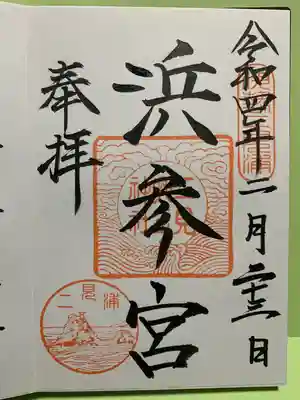 令和四年二月二十三日
浜参宮
奉拝
二見浦